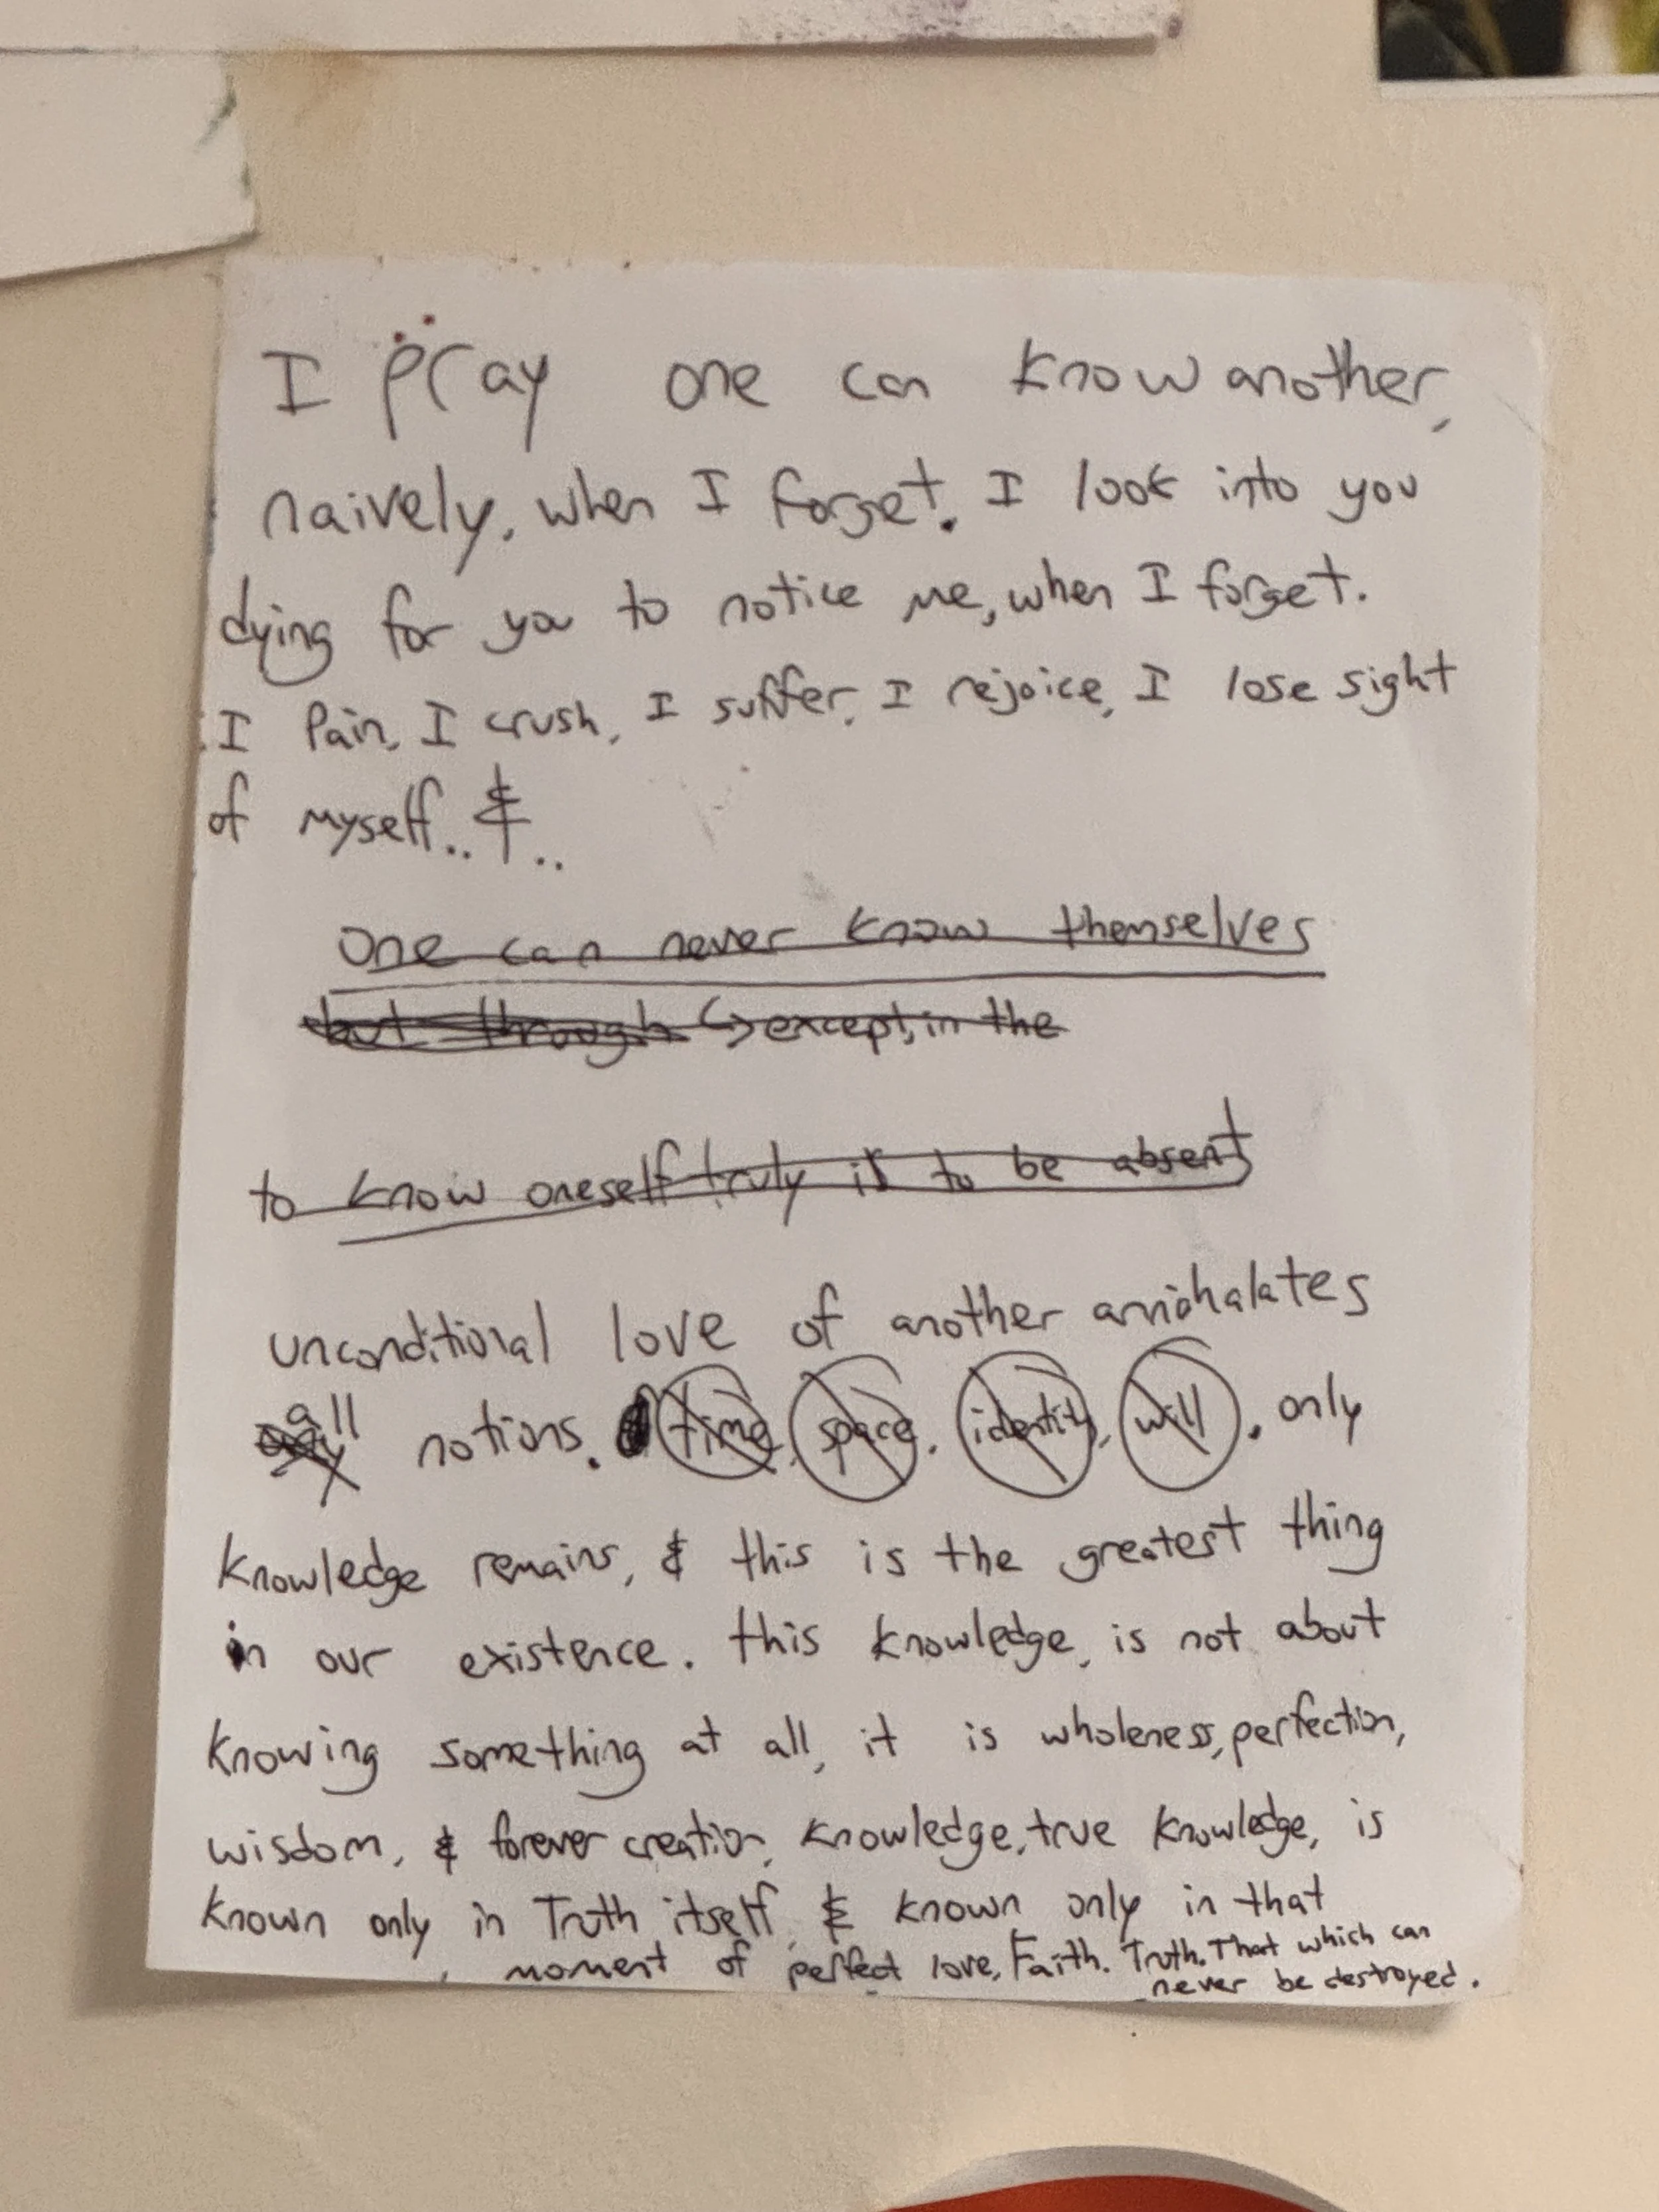 I pray one can know another,
naively, when I forget. I look into you
dying for you to notice me, when I forget.
I Pain, I crush, I suffer, I rejoice, I lose sight
of myself..&..
one can never know themselves
but through ↳ except, in the
to know oneself truly is to be absent
unconditional love of another annihalates
any all notions. time, space, identity, will. only
knowledge remains, & this is the greatest thing
in our existence. this knowledge, is not about
knowing something at all, it is wholeness, perfection,
wisdom, & forever creation, knowledge, true knowledge, is
known only in Truth itself, & known only in that
moment of perfect love, Faith. Truth. That which can
never be destroyed.